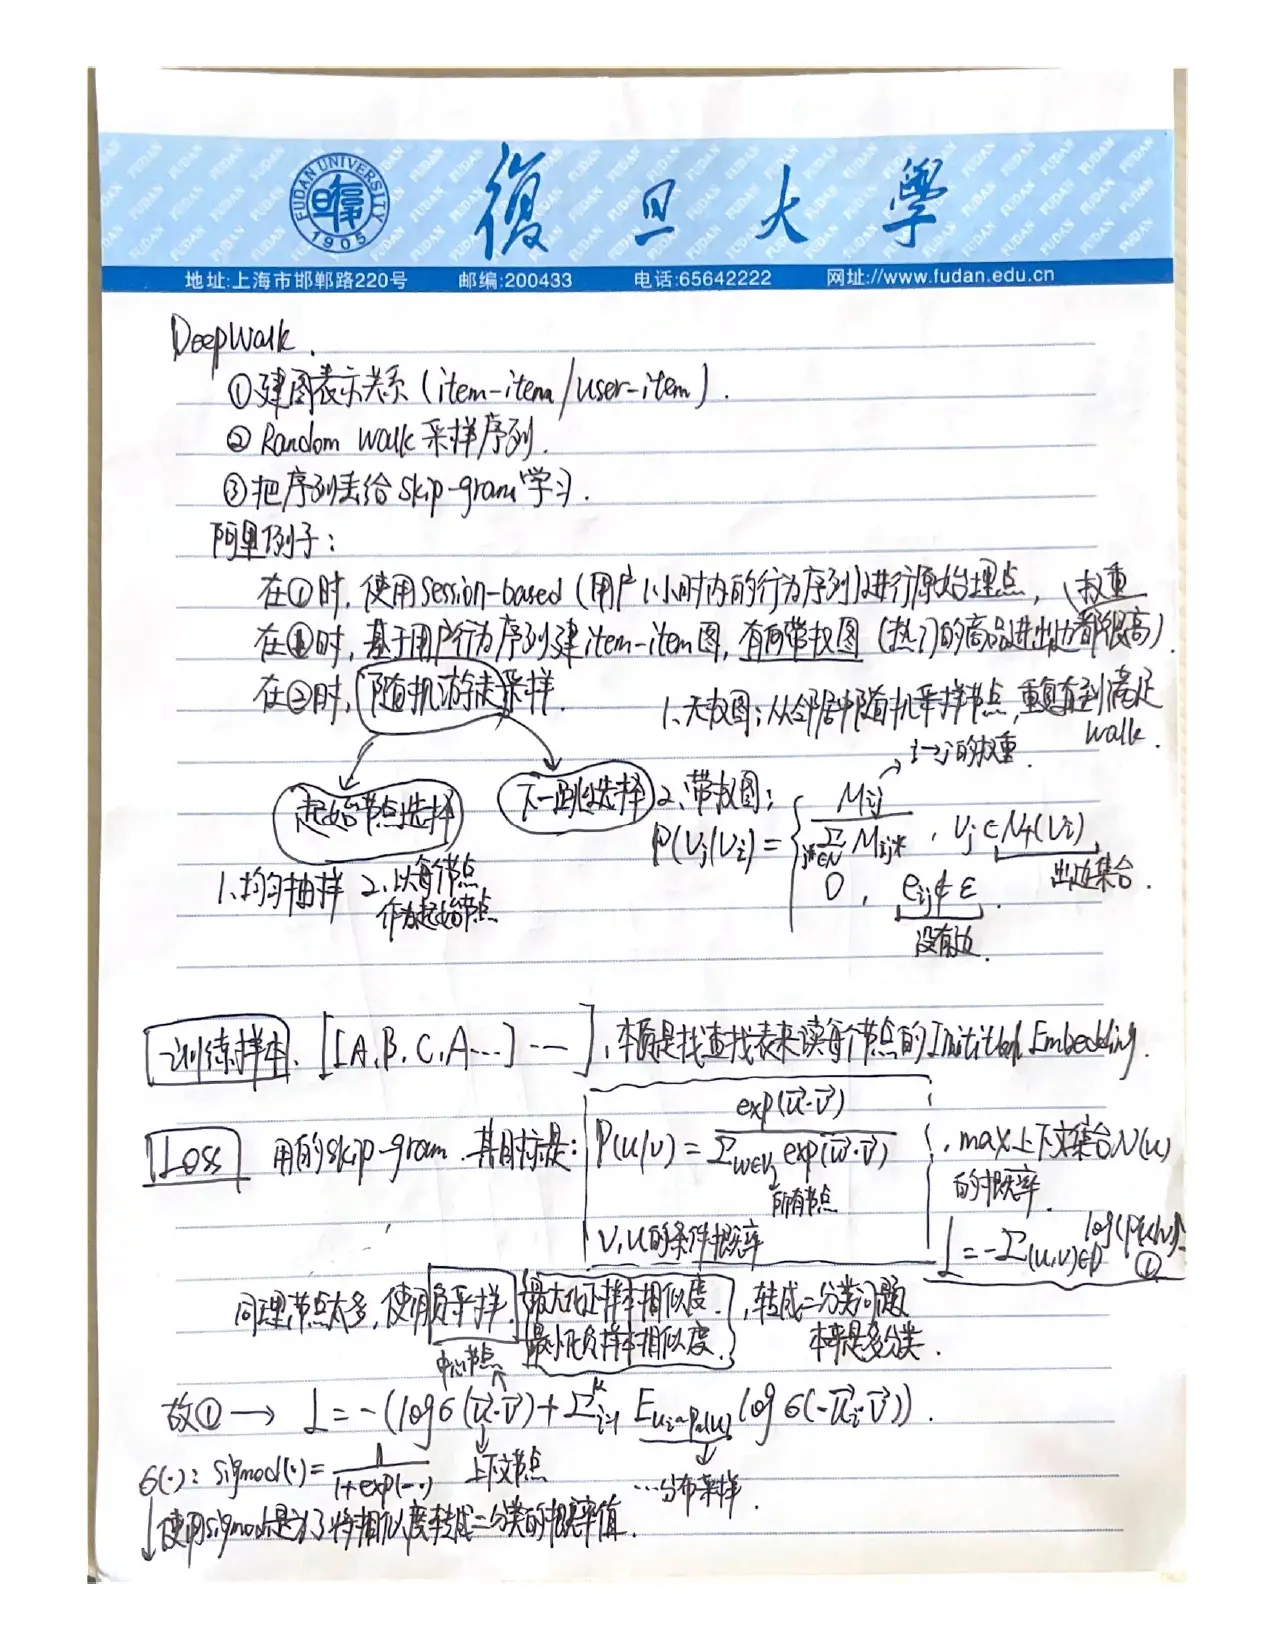 FUDAN UNIVERSITY 1905
復旦大學
地址:上海市邯郸路220号 邮编:200433 电话:65642222 网址://www.fudan.edu.cn
DeepWalk.
①建图表示关系（item-item/user-item）.
② Random walk 采样序列.
③把序列丢给 skip-gram 学习.
阿里例子：
在①时, 使用 session-based (用户1小时内的行为序列)进行原始埋点,
权重
在①时, 基于用户行为序列建item-item图, 有向带权图（热门的商品进出边都很高）.
在②时, 随机游走采样.
1、无权图：从邻居中随机采样节点, 重复直到满足walk.
起始节点选择
下一跳选择
1、均匀抽样 2、以每个节点作为起始节点
2、带权图：
i→j的权重.
P(Vj|Vi) = { Mij / Σ Mij* , Vj∈N+(Vi)
出边集合.
0, eij∉ε.
没有边.
训练样本、[[A.B.C.A...] ...], 本质是找查找表来读每个节点的Initited Embedding.
Loss 用的skip-gram. 其目标是:
P(u|v) = exp(u⃗·v⃗) / Σw∈V exp(w⃗·v⃗)
所有节点
V,U的条件概率
, max上下文集合N(u)的概率.
L = -Σ(u,v)∈D log(P(u|v)). ①
同理节点太多, 使用负采样, 最大化正样本相似度. 最小化负样本相似度. , 转成二分类问题
本来是多分类.
中心节点
故① → L = -(log σ(u⃗·v⃗) + Σ E log σ(-u⃗i·v⃗)).
σ(·): sigmod(·) = 1/(1+exp(-·))
上下文节点
...分布采样.
使用sigmod是为了将相似度转成二分类的概率值.